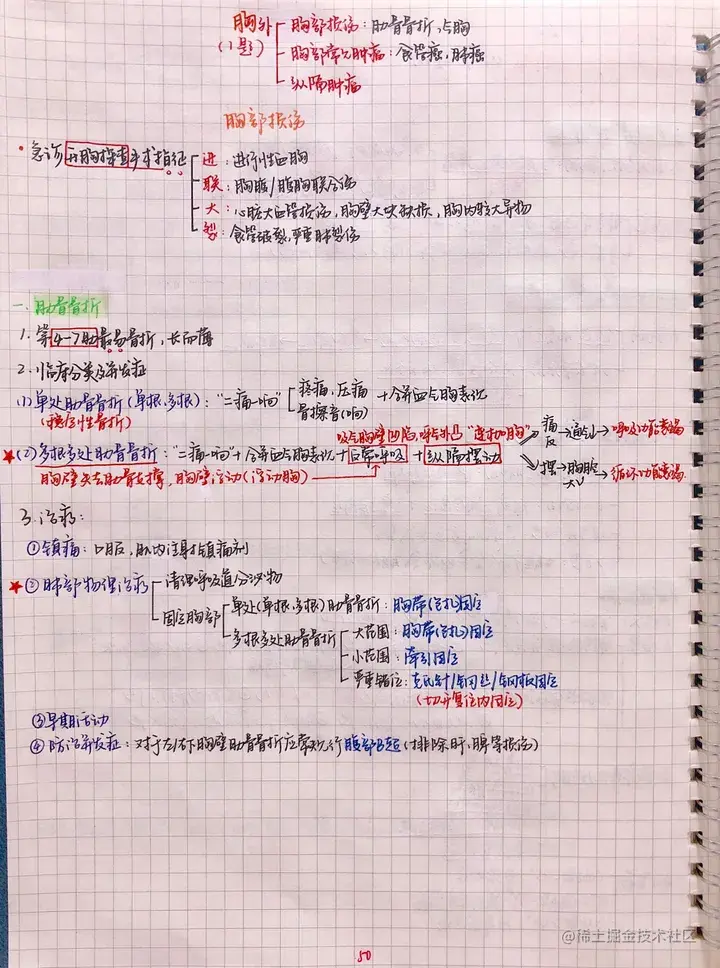 胸外 胸部损伤：肋骨骨折，气胸
(1题) 胸部常见肿瘤：食管癌，肺癌
纵隔肿瘤
胸部损伤
急诊开胸探查手术指征 进：进行性血胸
联：胸腹/腹胸联合伤
大：心脏大血管损伤，胸壁大块缺损，胸内较大异物
裂：食管破裂，严重肺裂伤
一. 肋骨骨折
1. 第4-7肋最易骨折，长而薄
2. 临床分类及并发症
(1) 单处肋骨骨折(单根、多根)："二痛一响" 疼痛，压痛 + 合并血气胸表现
(稳定性骨折) 骨擦音(响)
吸气胸壁凹陷，呼气外凸 "连枷胸" 痛 → 通气↓ → 呼吸功能衰竭
★(2) 多根多处肋骨骨折："二痛一响 + 合并血气胸表现 + 反常呼吸 + 纵隔摆动 反
胸壁失去肋骨支撑，胸壁浮动(浮动胸) 摆 → 胸腔 → 循环功能衰竭
3. 治疗：
①镇痛：口服，肌内注射镇痛剂
★②肺部物理治疗 清理呼吸道分泌物
固定胸部 单处(单根、多根)肋骨骨折：胸带(包扎)固定
多根多处肋骨骨折 大范围：胸带(包扎)固定
小范围：牵引固定
严重错位：克氏针/钢丝/钢板固定
(切开复位内固定)
③早期活动
④防治并发症：对于左/右下胸壁肋骨骨折应常规行腹部B超(排除肝、脾等损伤)
@稀土掘金技术社区
50